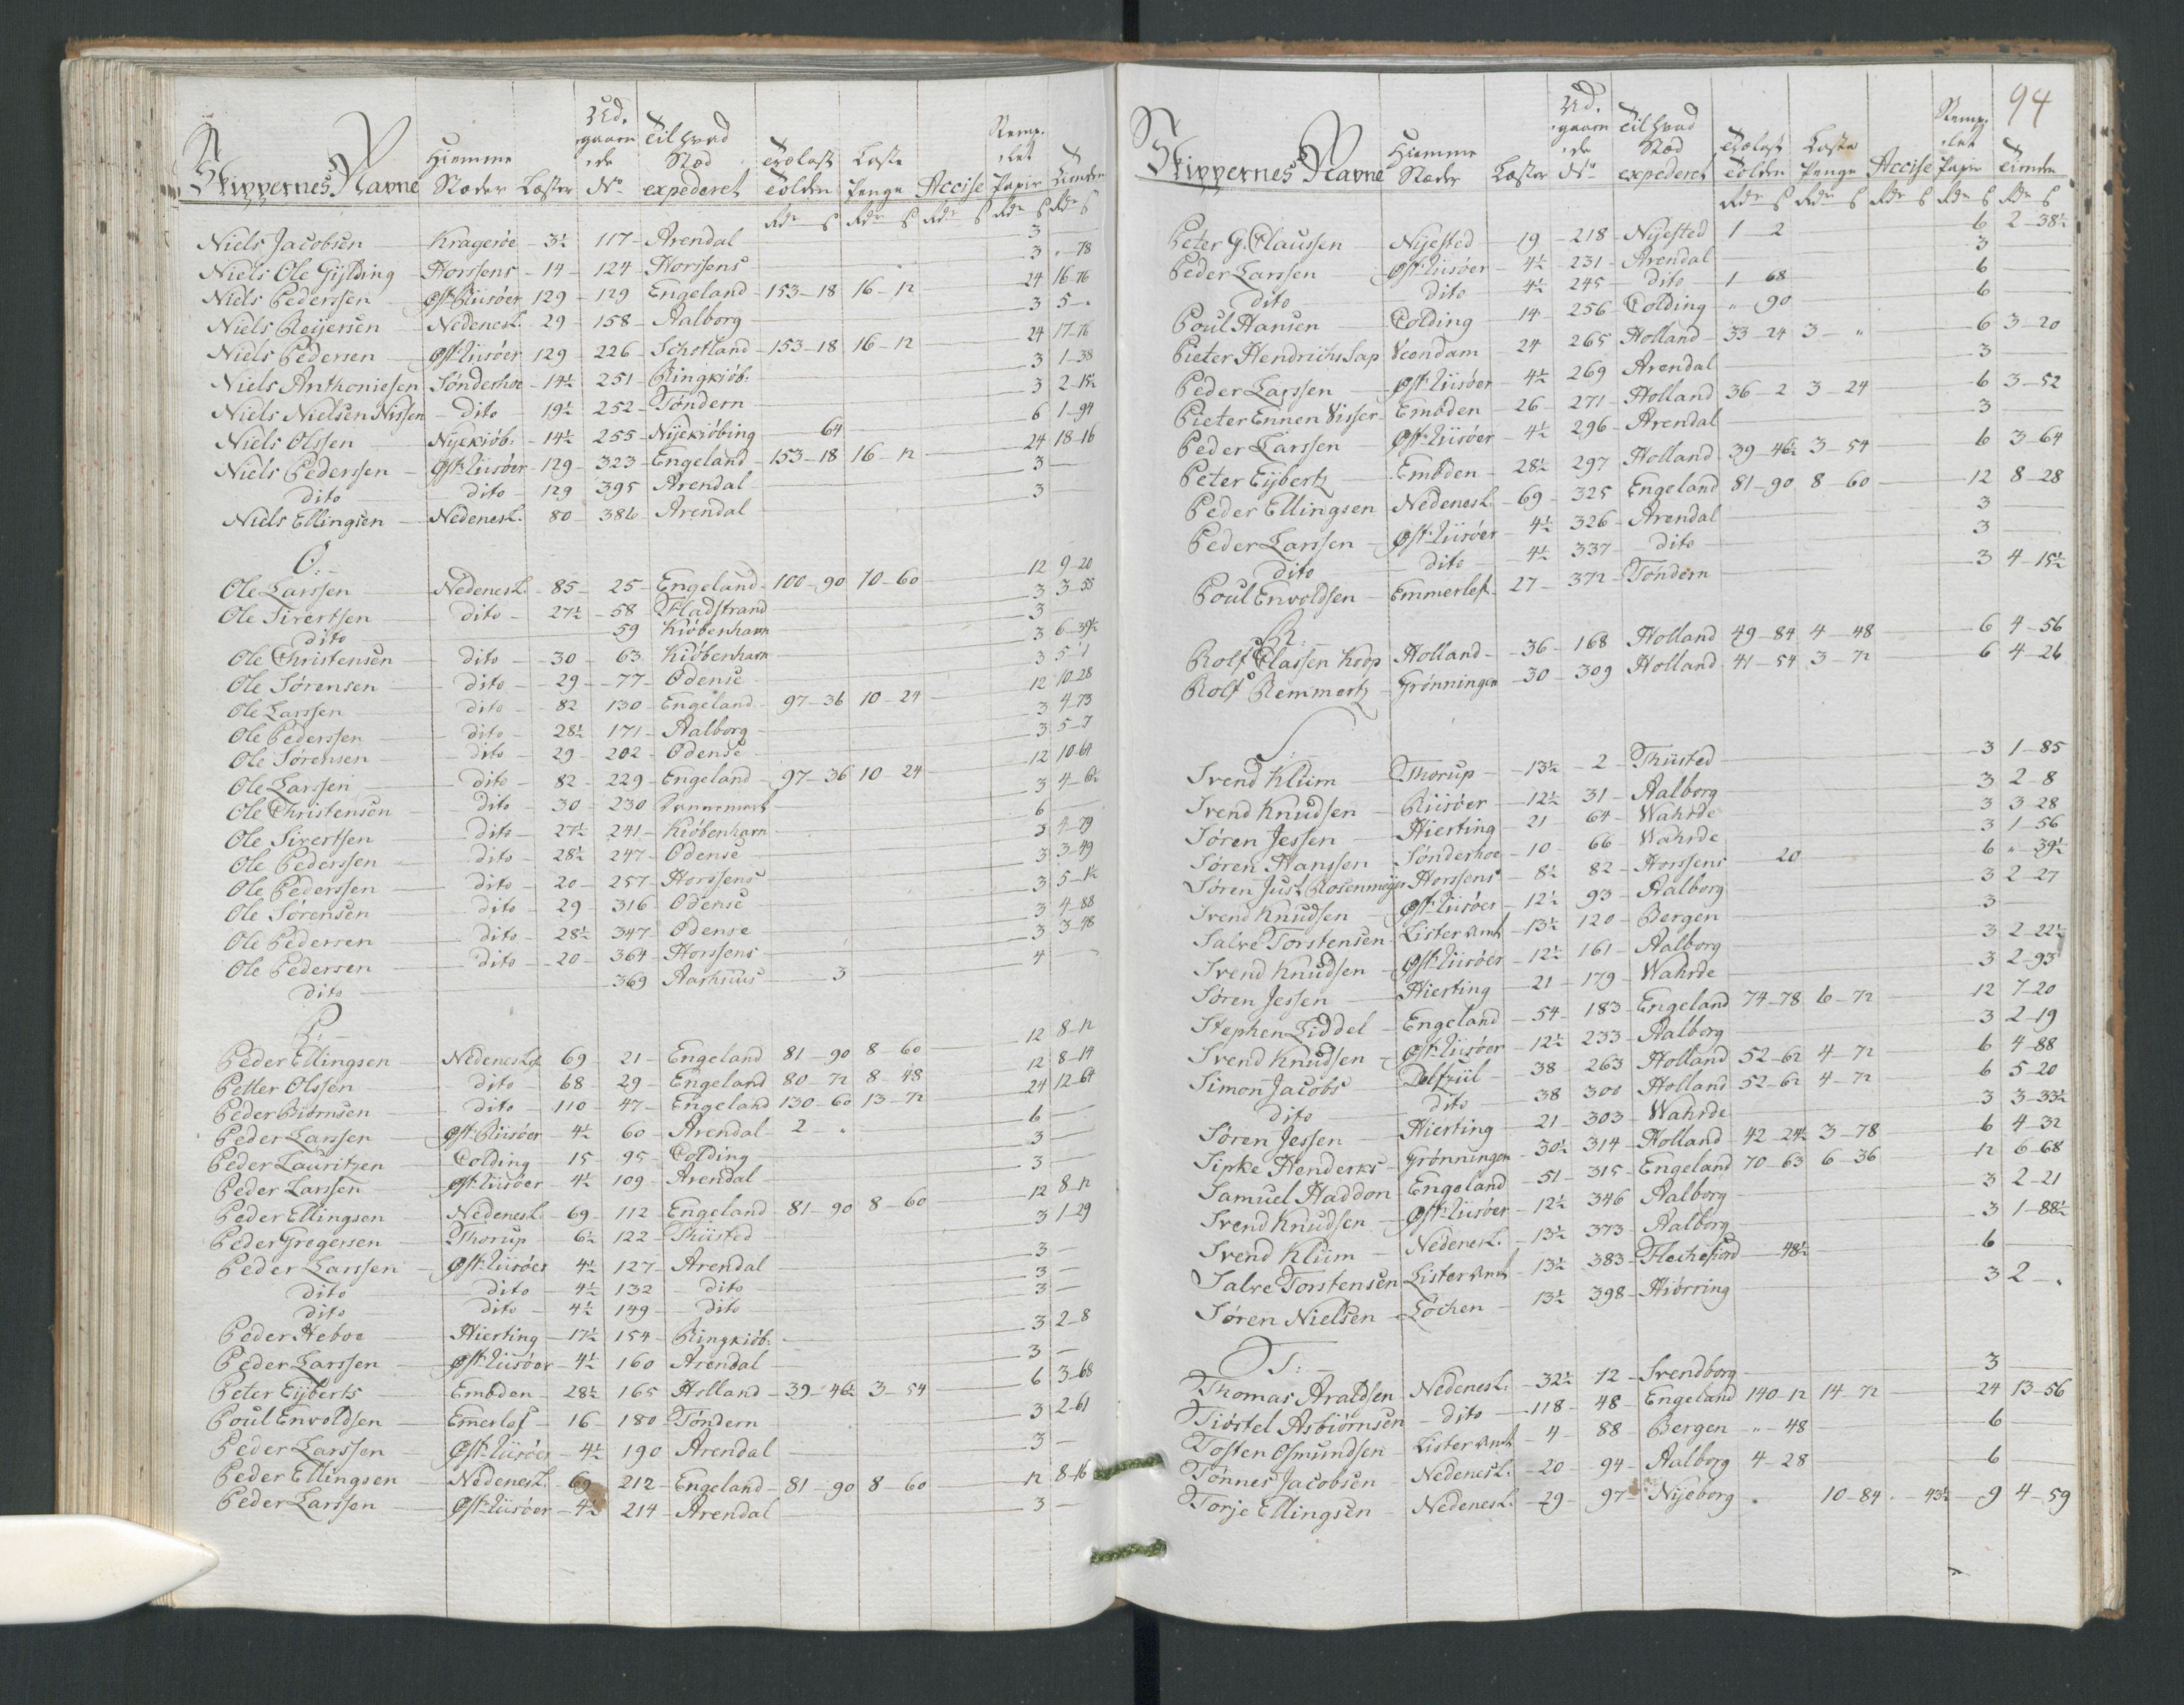 Skippernes Navne Hiemme Stæder Læster Udgaaende No Til hvad Stæd expederet Trælast Tolden Læste Penge Accise Stemplet Papir Tiender
Rdr ß Rdr ß Rdr ß Rdr ß Rdr ß
Niels Jacobsen Kragerøe 3½ 117 Arendal 3
Niels Ole Gylding Horssens 14 124 Horssens 3 " 78
Niels Pederssen Øst Riisøer 129 129 Engeland 153-18 16-12 24 16-76
Niels Reijersen Nedenesl. 29 158 Aalborg 3 5 "
Niels Pedersen Øst Riisøer 129 226 Schotland 153-18 16-12 24 17-76
Niels Anthoniesen Sønderhoe 14½ 251 Ringkiøb: 3 1-38
Niels Nielsen Nissen dito 19½ 252 Tøndern 3 2-15½
Niels Olssen Nyekiøb: 14½ 255 Nyekiøbing 64 6 1-94
Niels Pederssen Øst Riisøer 129 323 Engeland 153-18 16-12 24 18-16
dito dito 129 395 Arendal 3
Niels Ellingsen Nedenesl. 80 386 Arendal 3
O:
Ole Larssen Nedenesl. 85 25 Engeland 100-90 10-60 12 9-20
Ole Sivertsen dito 27½ 58 Fladstrand 3 3-55
dito 59 Kiøbenhavn 3
Ole Christensen dito 30 63 Kiøbenhavn 3 6-39½
Ole Sørensen dito 29 77 Odense 3 5-1
Ole Larssen dito 82 130 Engeland 97-36 10-24 12 10-28
Ole Pederssen dito 28½ 171 Aalborg 3 4-73
Ole Sørensen dito 29 202 Odense 3 5-7
Ole Larssen dito 82 229 Engeland 97-36 10-24 12 10-64
Ole Christensen dito 30 230 Dannemark 3 4-6½
Ole Sivertsen dito 27½ 241 Kiøbenhavn 6
Ole Pederssen dito 28½ 247 Odense 3 4-79
Ole Pederssen dito 20 257 Horssens 3 3-49
Ole Sørensen dito 29 316 Odense 3 5-1½
Ole Pedersen dito 28½ 347 Odense 3 4-88
Ole Pedersen dito 20 364 Horssens 3 3-48
dito 369 Aarhuus 3 4
P:
Peder Ellingsen Nedenesl. 69 21 Engeland 81-90 8-60 12 8-12
Petter Olssen dito 68 29 Engeland 80-72 8-48 12 8-14
Peder Biørnsen dito 110 47 Engeland 130-60 13-72 24 12-64
Peder Larssen Øst Riisøer 4½ 60 Arendal 2 " 6
Peder Lauritzen Colding 15 95 Colding 3
Peder Larssen Øst Riisøer 4½ 109 Arendal 3
Peder Ellingsen Nedenesl. 69 112 Engeland 81-90 8-60 12 8-12
Peder Gregersen Thorup 6½ 122 Thiisted 3 1-29
Peder Larssen Øst Riisøer 4½ 127 Arendal 3
dito dito 4½ 132 dito 3
dito dito 4½ 149 dito 3
Peder Heboe Hierting 17½ 154 Ringkiøb: 3 2-8
Peder Larssen Øst Riisøer 4½ 160 Arendal 3
Peter Eyberts Embden 28½ 165 Holland 39-46½ 3-54 6 3-68
Poul Envoldsen Emerlef 16 180 Tøndern 3 2-61
Peder Larssen Øst Riisøer 4½ 190 Arendal 3
Peder Ellingsen Nedenesl. 69 212 Engeland 81-90 8-60 12 8-16
Peder Larssen Øst Riisøer 4½ 214 Arendal 3
94
Skippernes Navne Hiemme Stæder Læster Udgaaende No Til hvad Stæd expederet Trælast Tolden Læste Penge Accise Stemplet Papir Tiender
Rdr ß Rdr ß Rdr ß Rdr ß Rdr ß
Peter G. Claussen Nyested 19 218 Nyested 1-2 6 2-38½
Peder Larssen Øst Riisøer 4½ 231 Arendal 3
dito dito 4½ 245 dito 1 68 6
Poul Hansen Colding 14 256 Colding " 90 6
Pieter Hendrichs Sap Veendam 24 265 Holland 33-24 3 " 6 3-20
Peder Larssen Øst Riisøer 4½ 269 Arendal 3
Pieter Ennen Visser Embden 26 271 Holland 36-2 3-24 6 3-52
Peder Larssen Øst Riisøer 4½ 296 Arendal 3
Peter Eybertz Embden 28½ 297 Holland 39-46½ 3-54 6 3-64
Peder Ellingsen Nedenesl. 69 325 Engeland 81-90 8-60 12 8-28
Peder Larssen Øst Riisøer 4½ 326 Arendal 3
dito dito 4½ 337 dito 3
Poul Envoldsen Emmerlef 27 372 Tøndern 3 4-15½
R:
Rolf Classen Koop Holland 36 168 Holland 49-84 4-48 6 4-56
Rolf Remmertz Grønningen 30 309 Holland 41-54 3-72 6 4-26
S
Svend Klüm Thorup 13½ 2 Thiisted 3 1-85
Svend Knudsen Riisøer 12½ 31 Aalborg 3 2-8
Søren Jessen Hierting 21 64 Wahrde 3 3-28
Søren Hanssen Sønderhoe 10 66 Wahrde 3 1-56
Søren Just Rosenmeyer Horssens 8½ 82 Horssens 20 6 " 39½
Svend Knudsen Øst Riisøer 12½ 93 Aalborg 3 2-27
Salve Torstensen Lister Amt 13½ 120 Bergen 3
Svend Knudsen Øst Riisøer 12½ 161 Aalborg 3 2-22½
Søren Jessen Hierting 21 179 Wahrde 3 2-93
Stephen Liddel Engeland 54 183 Engeland 74-78 6-72 12 7-20
Svend Knudsen Øst Riisøer 12½ 233 Aalborg 3 2-19
Simon Jacobs Delfziil 38 263 Holland 52-62 4-72 6 4-88
dito dito 38 300 Holland 52-62 4-72 6 5-20
Søren Jessen Hierting 21 303 Wahrde 3 3-33½
Sipke Henderks Grønningen 30½ 314 Holland 42-24½ 3-78 6 4-32
Samuel Haddon Engeland 51 315 Engeland 70-63 6-36 12 6-68
Svend Knudsen Øst Riisøer 12½ 346 Aalborg 3 2-21
Svend Klüm Nedenesl. 13½ 373 Aalborg 3 1-88½
Salve Torstensen Lister Amt 13½ 383 Flechefiord 48½ 6
Søren Nielsen Løchen 13½ 398 Hiørring 3 2 "
T:
Thomas Araldsen Nedenesl: 32½ 12 Svendborg 3
Tiøstel Asbiørnsen dito 118 48 Engeland 140-12 14-72 24 13-56
Tosten Osmundsen Lister Amt 4 88 Bergen " 48 6
Tønnes Jacobsen Nedenesl. 20 94 Aalborg 4-28 6
Torje Ellingsen Nedenesl. 29 97 Nyeborg " 10-84 43½ 9 4-59